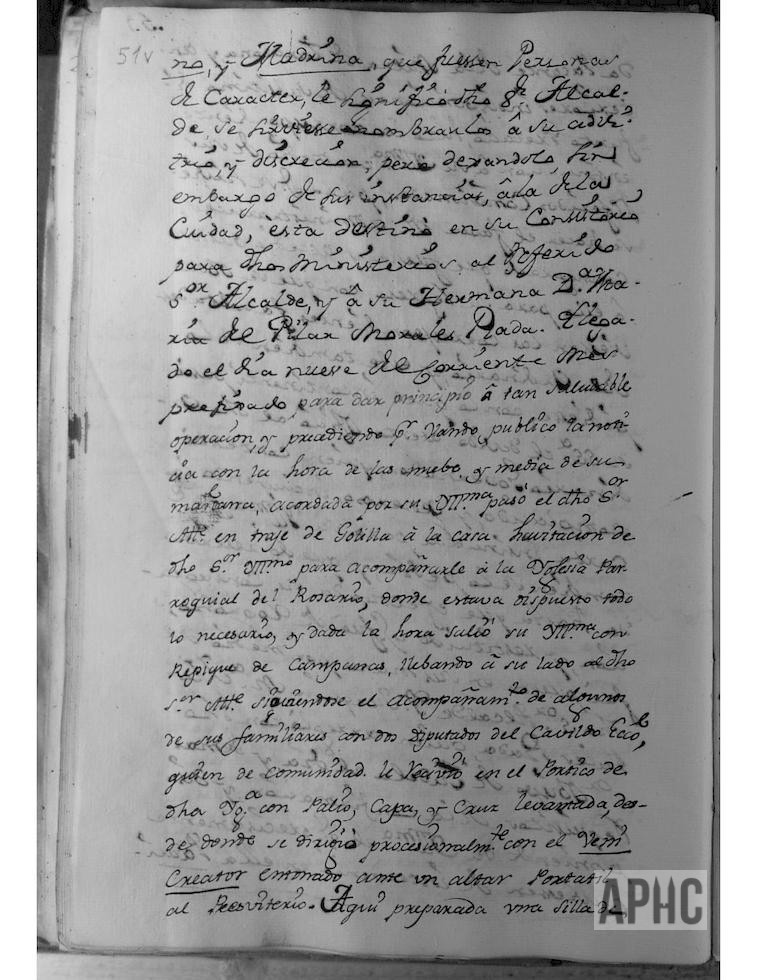 51v
no, y Madrina, que fuessen Personas
de Caracter, le significò dho Sr. Alcal-
de, se sirviesse nombrarlos â su advi.
trio, y discrecion; pero dexandolo sin
embargo de sus instancias, â la de la
Ciudad, èsta destinò en su Consistorio
para dhos Ministerios al referido
Sor Alcalde, y â su Hermana D.a Ma-
ria del Pilar Morales Prada. Llega-
do el dia nueve del Corriente Mes
prefixado para dar principio â tan saludable
operacion, y precediendo pr. Vando publico la noti
cia con la hora de las nuebe y media de su
mañana, acordada por su Yll.ma pasò el dho Sor
Alle. en traje de Golilla â la casa havitacion de
dho Sor Yll.mo para acompañarle â la Yglesia Par
roquial del Rosario, donde estava dispuesto todo
lo necesario, y dada la hora saliò su Yll.ma con
Repique de Campanas, llebando â su lado al dho
S.or Alle siguiendose el acompañam.to de algunos
de sus familiares con dos Diputados del Cavildo Ecco,
quien de comunidad le recivio en el Portico de
dha Yga con Palio, Capa, y Cruz levantada, des-
de donde se dirigiò procesionalm.te con el Veni
Creator entonado ante un altar Portatil
al Presviterio. Aqui preparada una silla de
APHC